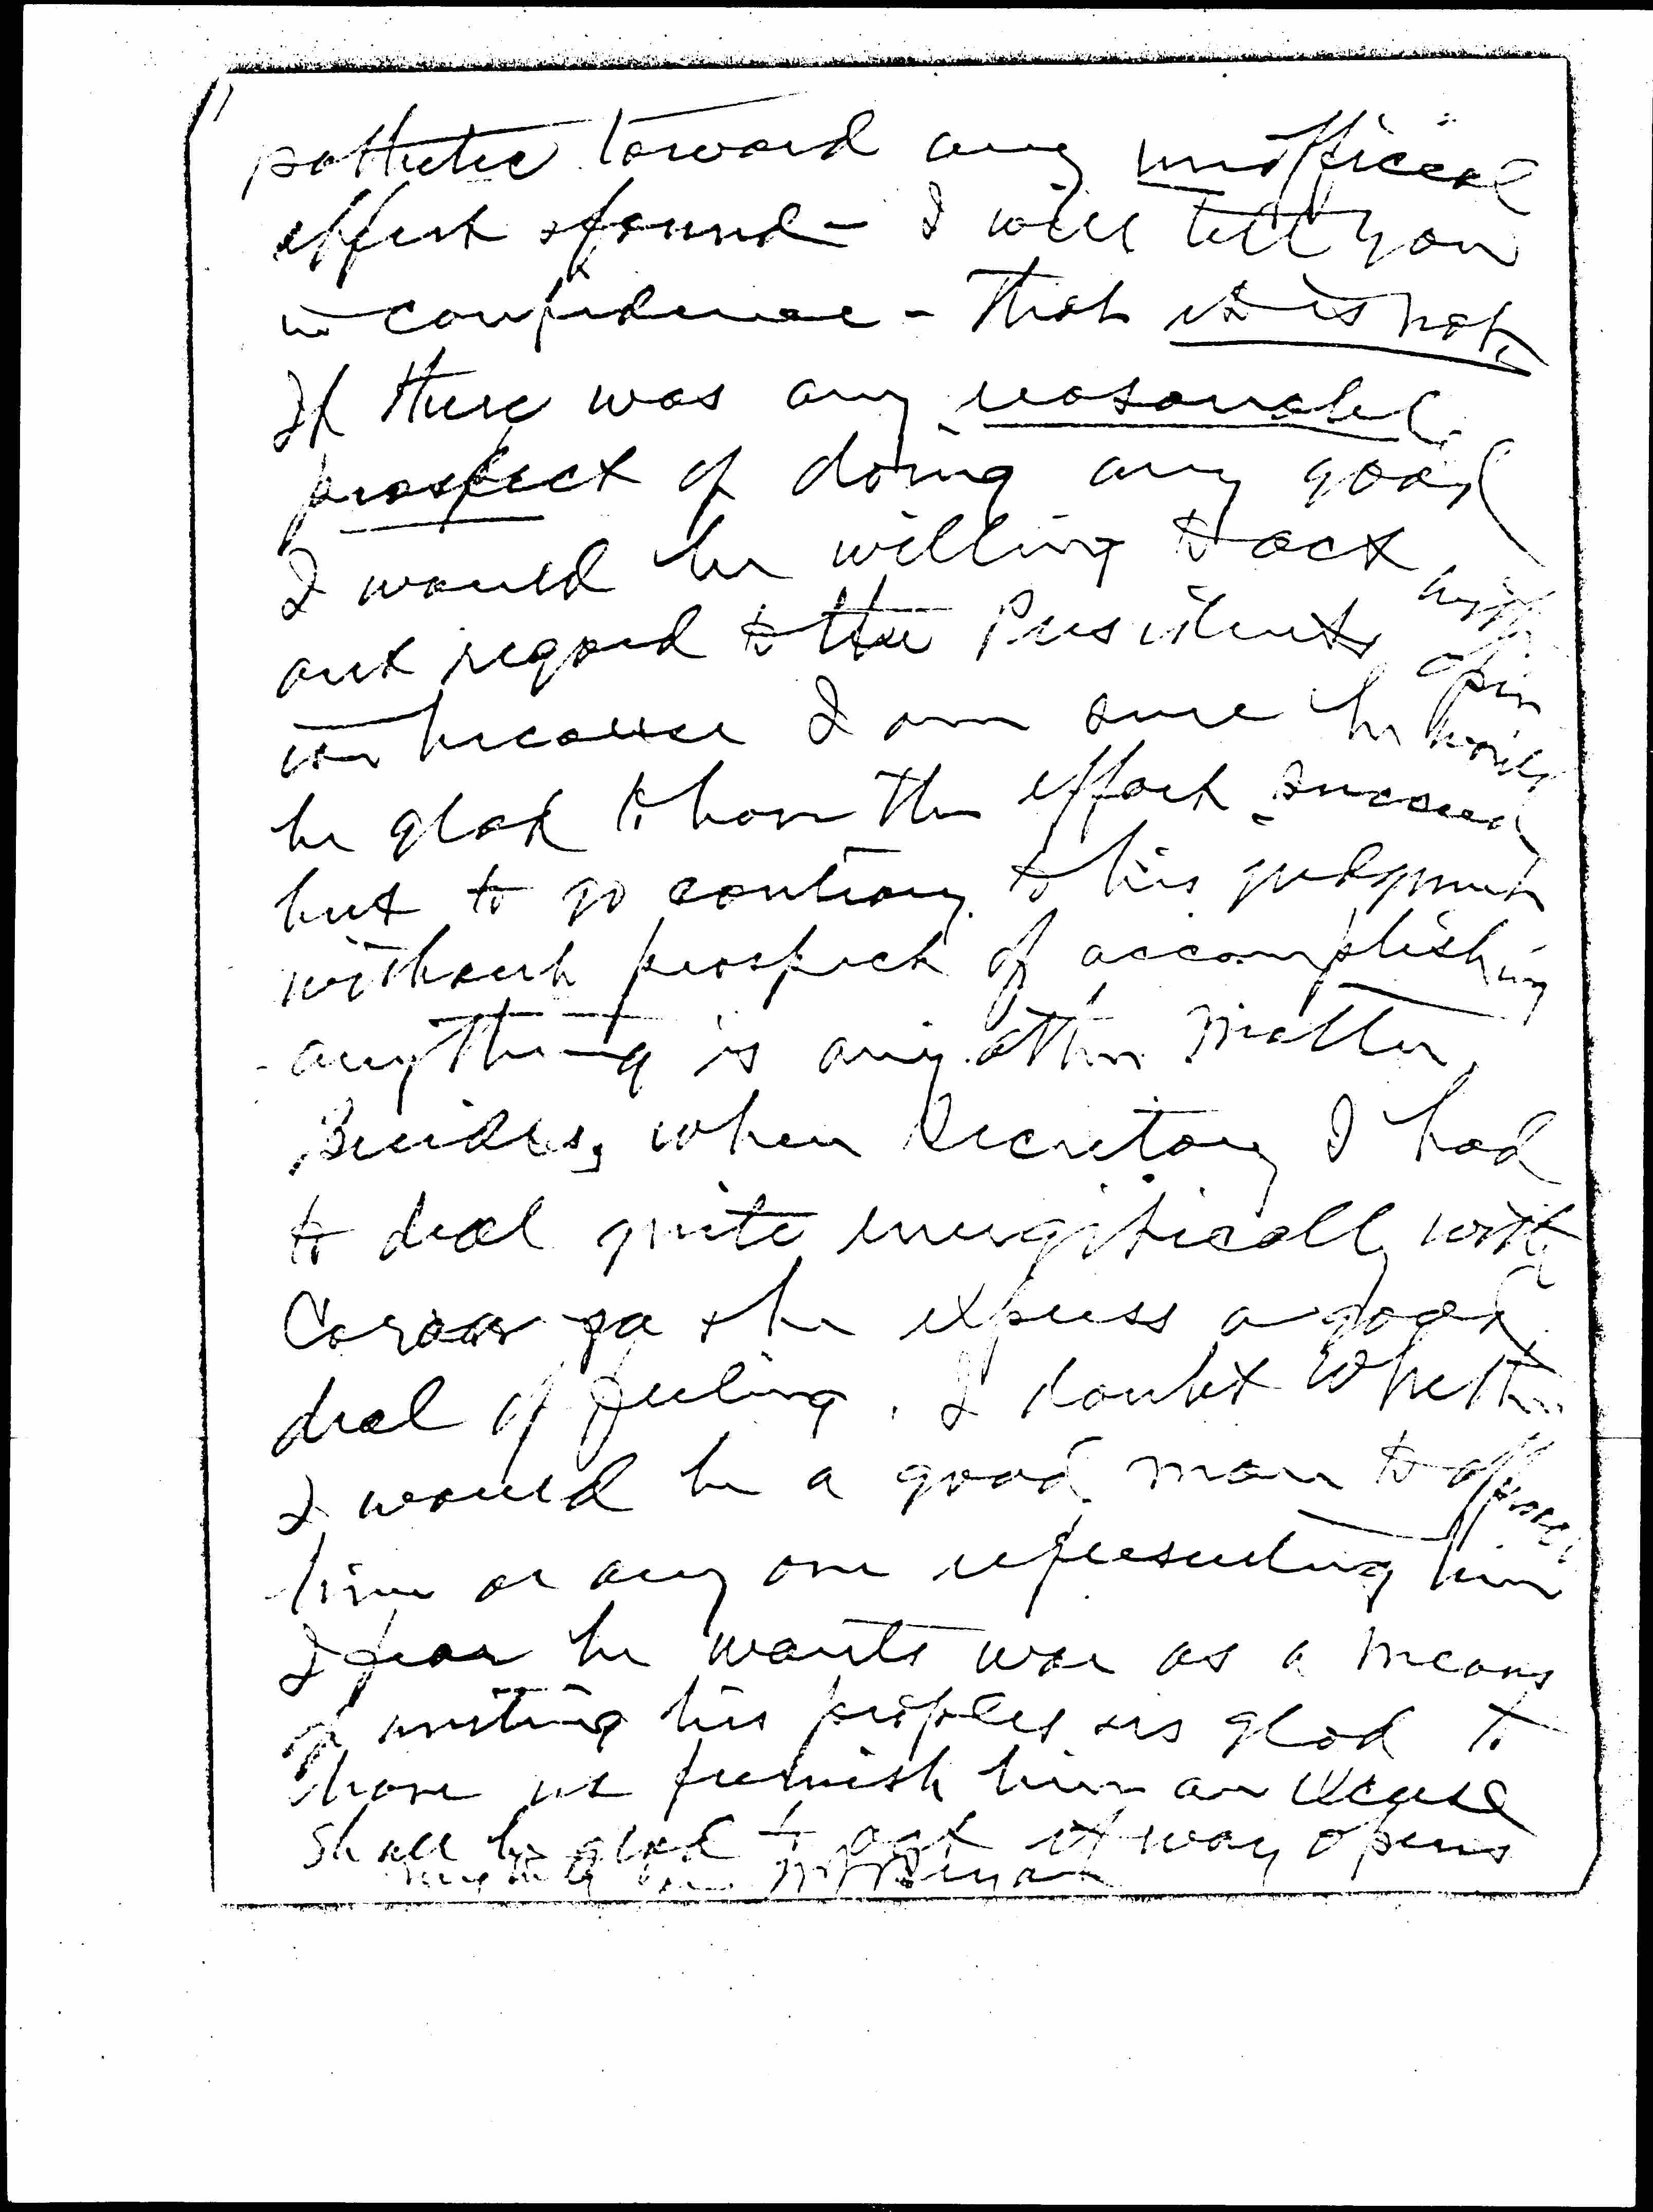 pathetic toward any unofficial
effort & found - I will tell you
in confidence - that it is not.
If there was any reasonable
prospect of doing any good
I would be willing to act with
out regard to the Presidents opin
ion because I am sure he would
be glad to have the effort succeed
but to go contrary to his judgment
without prospect of accomplishing
anything is any other matter.
Besides, when Secretary I had
to deal quite energetically with
Caranza & he express a good
deal of feeling. I doubt whether
I would be a good man to approach
him or any one representing him
I fear he wants war as a means
of uniting his people & is glad to
have us furnish him an excuse
Shall be glad to act if way opens
W J Bryan